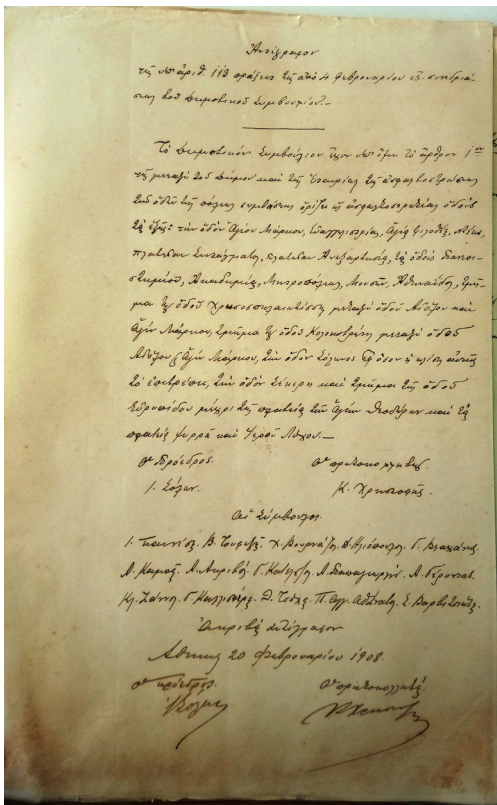 Ἀντίγραφον
τῆς ὑπ' ἀριθ. 113 πράξεως τῆς ἀπὸ 4 Φεβρουαρίου ἐ.ἔ. συνεδριά-
σεως τοῦ Δημοτικοῦ Συμβουλίου.—
Τὸ Δημοτικὸν Συμβούλιον ἔχον ὑπ' ὄψει τὸ ἄρθρον 1ον
τῆς μεταξὺ τοῦ Δήμου καὶ τῆς Ἑταιρίας τῆς ἀσφαλτοστρώσεως
τῶν ὁδῶν τῆς πόλεως συμβάσεως ὁρίζει ὡς ἀσφαλτοστρωτέας ὁδοὺς
τὰς ἑξῆς τὴν ὁδὸν Ἁγίου Μάρκου, Εὐαγγελιστρίας, Ἁγίας Φιλοθέης, Νίκης,
πλατεῖαν Συντάγματος, πλατεῖαν Ἀνεξαρτησίας, τὰς ὁδοὺς Πανεπι-
στημίου, Ἀκαδημίας, Μητροπόλεως, Μουσῶν, Ἀθηναΐδος, τμῆ-
μα τῆς ὁδοῦ Χρυσοσπηλαιωτίσσης μεταξὺ ὁδοῦ Αἰόλου καὶ
Ἁγίου Μάρκου, τμῆμα τῆς ὁδοῦ Κολοκοτρώνη μεταξὺ ὁδοῦ
Αἰόλου & Ἁγίου Μάρκου, τὴν ὁδὸν Σόλωνος ἐφ' ὅσον ἡ κλίσις αὐτῆς
τὸ ἐπιτρέπει, τὴν ὁδὸν Σέκερη καὶ τμῆμα τῆς ὁδοῦ
Εὐριπίδου μέχρι τῆς πλατείας τῶν Ἁγίων Θεοδώρων καὶ τὰς
πλατείας Ψυρρῆ καὶ Ἱεροῦ Λόχου.—
Ὁ Πρόεδρος Ὁ πρακτικογράφος
Κ. Χρηστοφῆς
Οἱ Σύμβουλοι
Β. Τουφεξῆς Χ. Βουρνάζος Ἡλιόπουλος Γ.
Λ. Καμαρ. Α. Ἀκριβὸς Γ. Α. Παπαγιαννῆς Α. Γέροντας
Κλ. Ζάννος Γ. Καλλισπέρης Σ. Βαρβιτσιώτης
Ἀκριβὲς ἀντίγραφον
Ἀθήνας 20 Φεβρουαρίου 1908.
Ὁ πρόεδρος